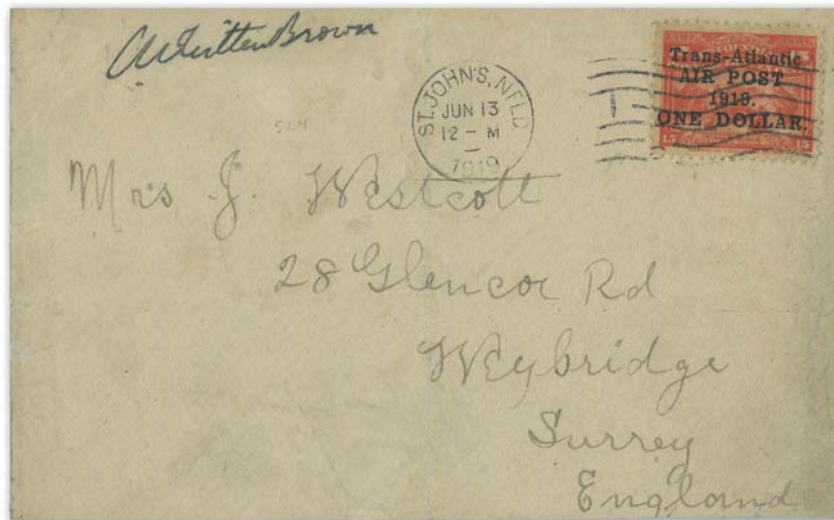 AWhittenBrown
ST. JOHN'S, NFLD
JUN 13
12 - M
1919
Trans-Atlantic
AIR POST
1919.
ONE DOLLAR.
15 15
524
Mrs J. Westcott
28 Glencoe Rd
Weybridge
Surrey
England